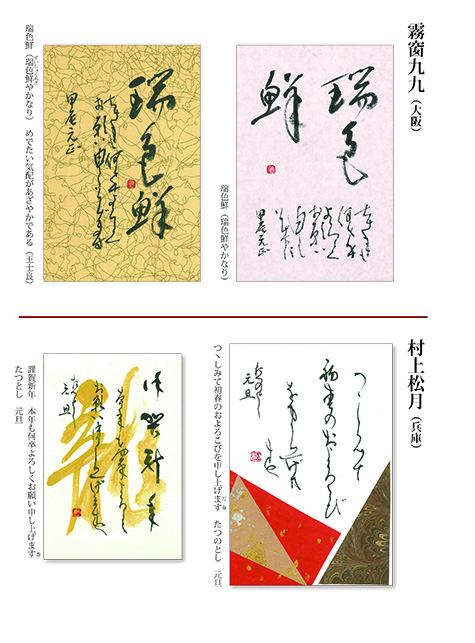 霧窗九九（大阪）
瑞色鮮
瑞色鮮（瑞色鮮やかなり）
甲辰元正
瑞色鮮
甲辰元正
瑞色鮮（瑞色鮮やかなり）　めでたい気配があざやかである（王士良）
村上松月（兵庫）
つゝしみて
初春のおよろこび
を申し上げ
ます
たつのとし
元旦
つゝしみて初春のおよろこびを申し上げます　たつのとし　元旦
龍
謹賀新年
本年も何卒よろしく
お願い申し上げます
たつとし
元旦
謹賀新年　本年も何卒よろしくお願い申し上げます
たつとし　元旦